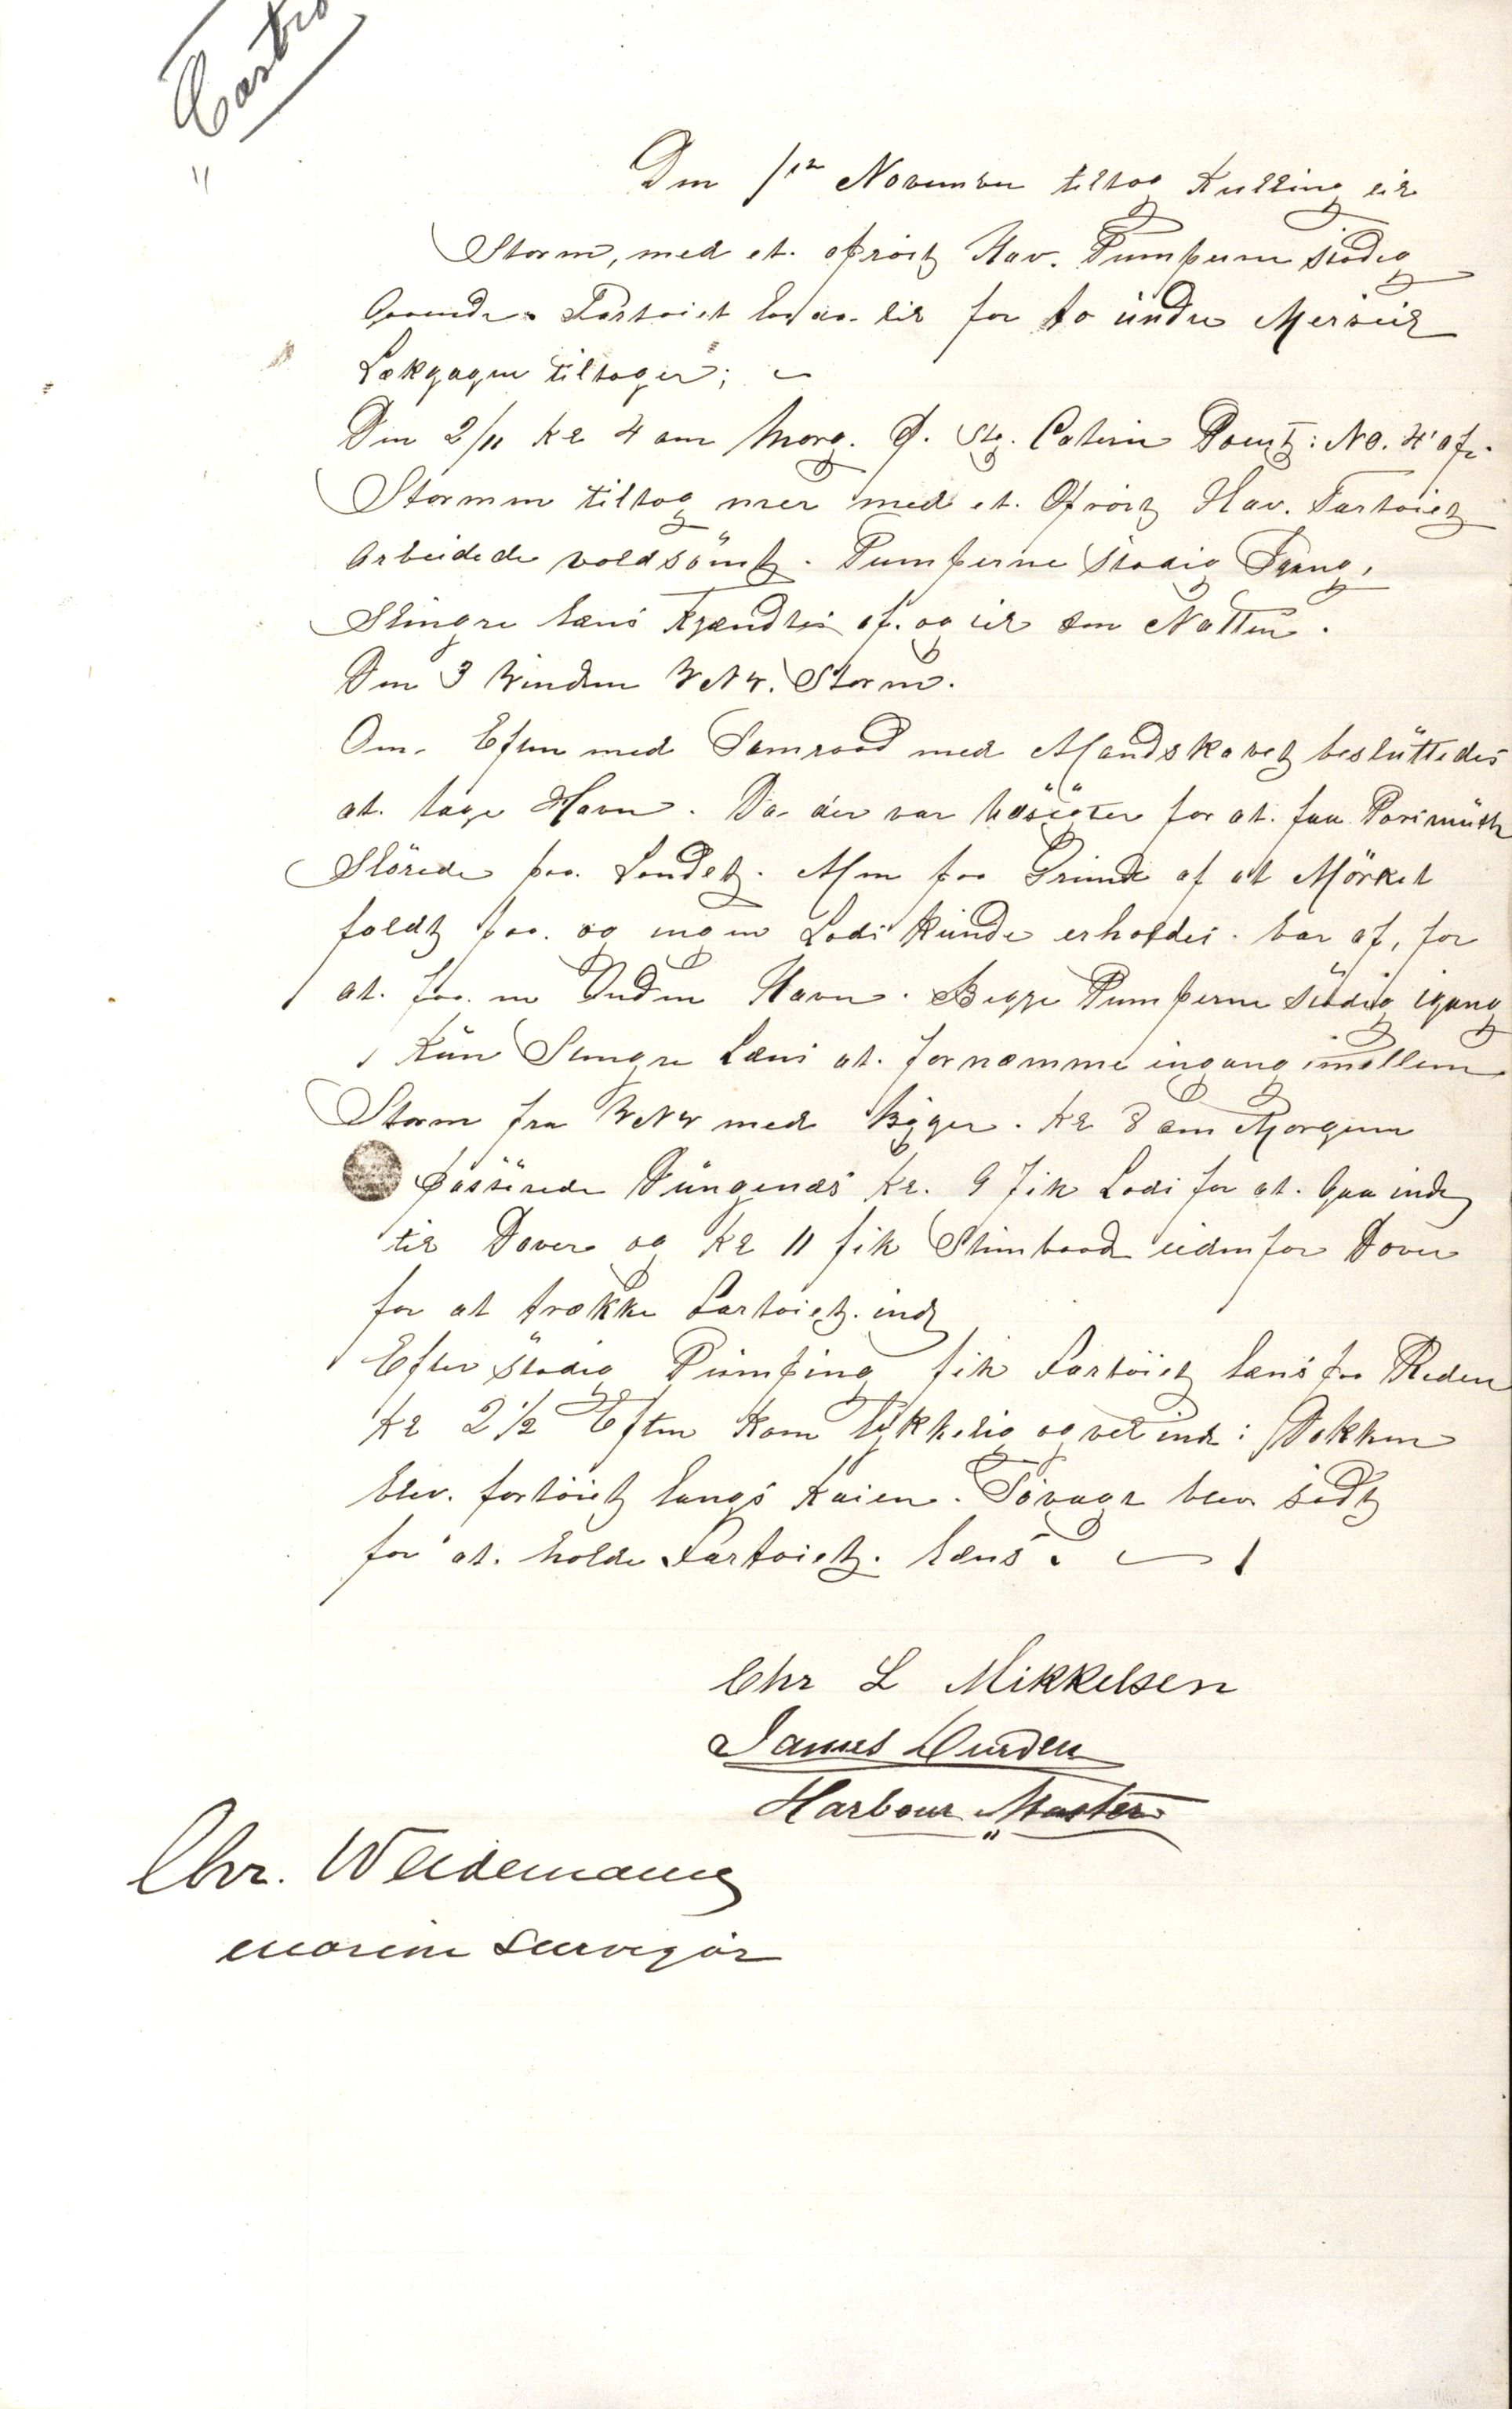 Castro
Den 1ste November tiltog Kulling til
Storm, med et. oprört Hav. Pumperne stadig
Gaaende. Fartøiet laa til for to undre Mersseil
Lækgagen tiltager;
Den 2/11 Kl 4 om Morg. P. St. Catrin Point: NO. 4' af.
Stormen tiltog mer med et. Oprört Hav. Fartøiet
Arbeidede voldsomt. Pumperne stadig Igang,
Slingre læns Kjendtes af. og til om Natten.
Den 3 Vinden WNW. Storm.
Om. Eftm med Samraad med Mandskabet besluttedes
at. tage Havn. Da der var for at. faa
paa. Landet. Men paa Grund af at Mörket
faldt paa. og ingen Lods Kunde erholdes. bar af, for
at. faa. en Anden Havn. Begge Pumperne stadig igang
Kun Slingre Læns at. fornæmme ingang imellem
Storm fra WNW med Byger. Kl 8 om Morgenen
passerede Dungenæs Kl. 9 fik Lods for at. Gaa ind
til Dover og Kl 11 fik Stimbaad udenfor Dover
for at trække Fartøiet. ind
Efter stadig Pumping fik Fartöiet læns paa Reden
Kl 2 1/2 Eftm Kom lykkelig og vel ind i Dokken
blev. fortöiet langs Kaien. Sövagt blev sadt
for at. holde Fartøiet. læns.
Chr L Mikkelsen
James Durden
Harbour Master
Chr. Weidemann
marine surveyor